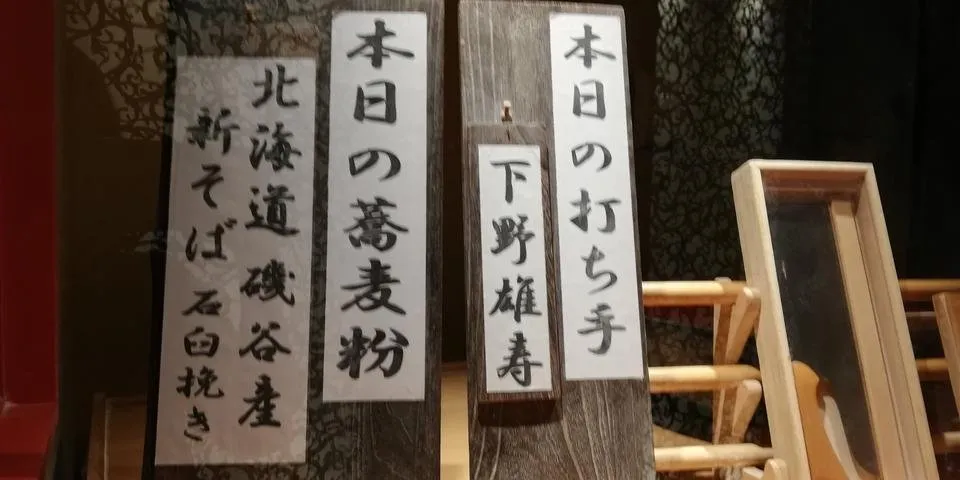 本日の打ち手
下野雄寿
本日の蕎麦粉
北海道磯谷産
新そば 石臼挽き